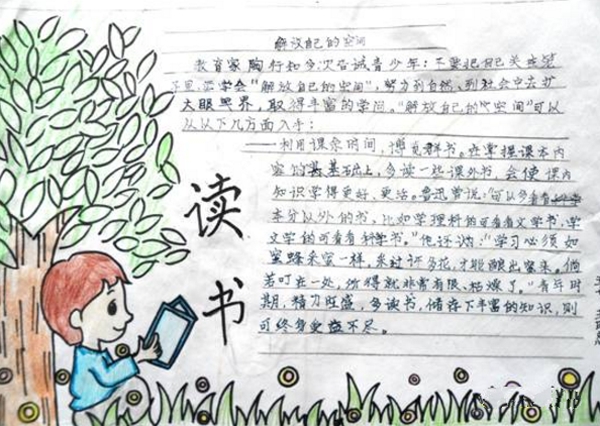 解放自己的空间
教育家陶行知多次告诫青少年:不要把自己关在笼
子里,要学会"解放自己的空间",努力到自然、到社会中去扩
大眼界,取得丰富的学问。"解放自己的空间"可以
从以下几方面入手:
一利用课余时间,博览群书。在掌握课本内
容的基础上,多读一些课外书,会使课内
知识学得更好、更活。鲁迅曾说:"可以多看看
本分以外的书,比如学理科的可看看文学书,学
文学的可看看科学书。"他还说:"学习必须如
蜜蜂采蜜一样,采过许多花,才能酿出蜜来。倘
若叮在一处,所得就非常有限、枯燥了。"青年时
期,精力旺盛,多读书,储存下丰富的知识,则
可终身受益不尽。
读书